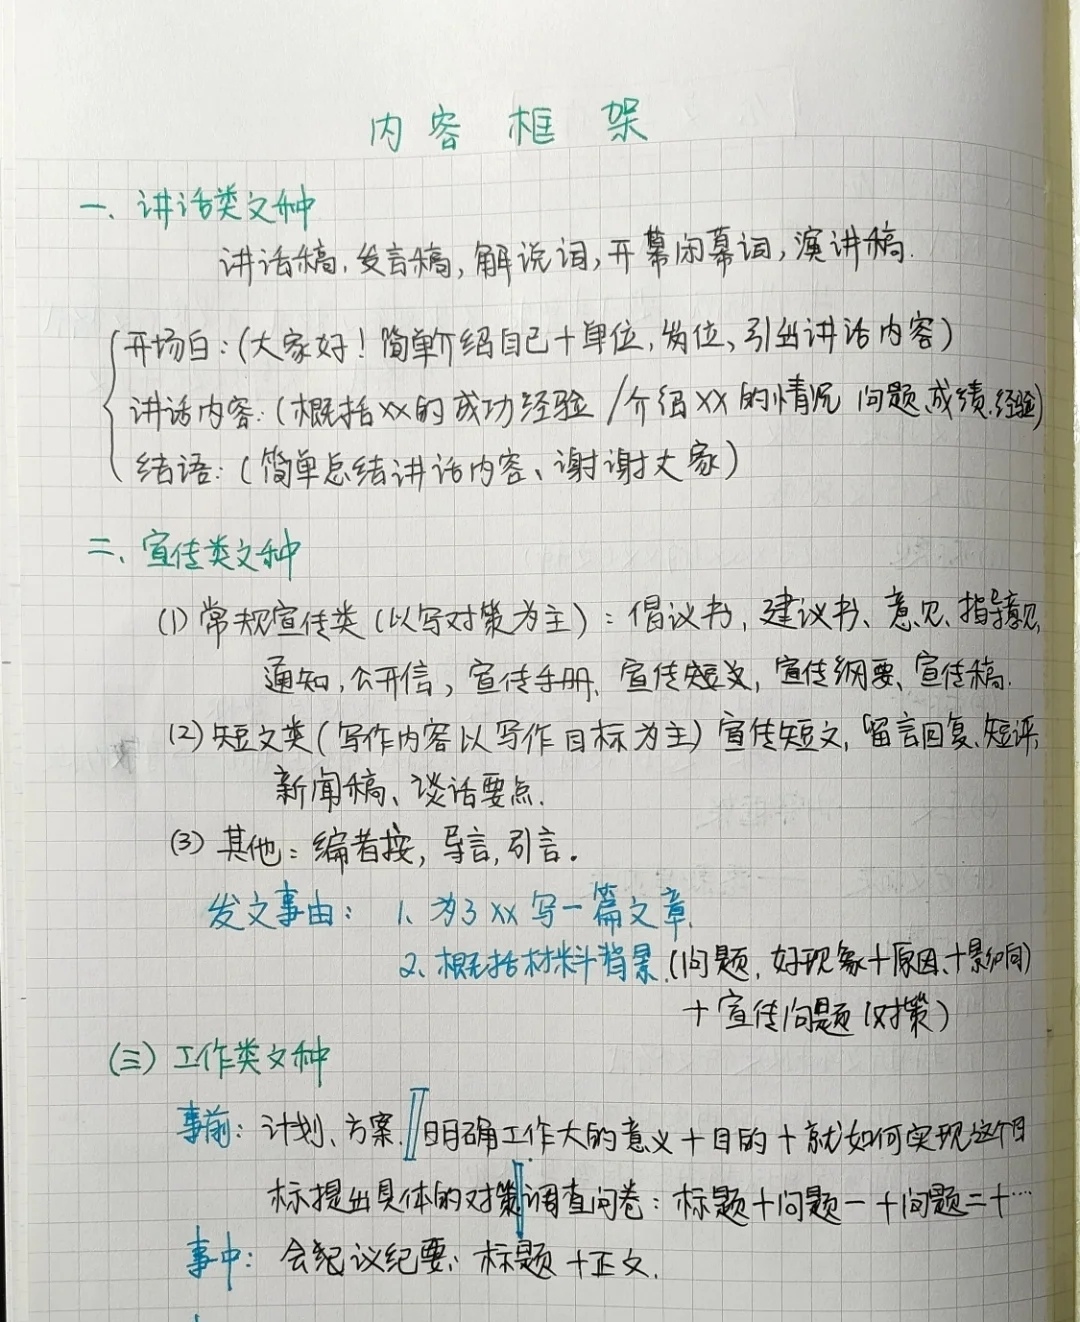 内容框架
一、讲话类文种
讲话稿,发言稿,解说词,开幕闭幕词,演讲稿.
开场白:(大家好!简单介绍自己+单位,岗位、引出讲话内容)
讲话内容:(概括xx的成功经验/介绍xx的情况 问题、成绩、经验)
结语:(简单总结讲话内容、谢谢大家)
二、宣传类文种
(1)常规宣传类(以写对策为主):倡议书,建议书、意见、指导意见,
通知,公开信,宣传手册、宣传短文,宣传纲要、宣传稿.
(2)短文类(写作内容以写作目标为主)宣传短文,留言回复、短评,
新闻稿、谈话要点.
(3)其他:编者按,导言,引言.
发文事由:1、为了xx写一篇文章.
2、概括材料背景.(问题,好现象+原因、+影响)
+宣传问题(对策)
(三)工作类文种
事前:计划、方案.明确工作大的意义+目的+就如何实现这个目
标提出具体的对策 调查问卷:标题+问题一+问题二+…
事中:会纪议纪要:标题+正文.